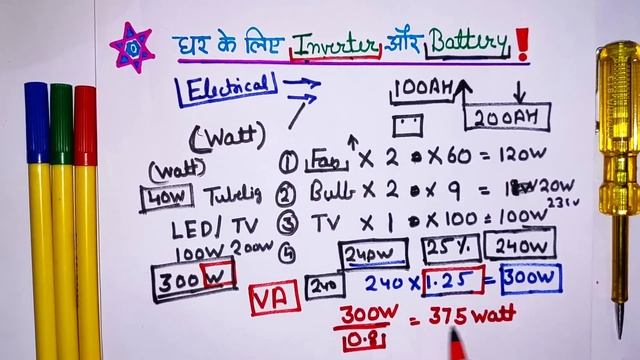 घर के लिए Inverter और Battery!
Electrical
100AH
200AH
(Watt)
(Watt)
① Fan × 2 × 60 = 120W
40W Tubelig ② Bulb × 2 × 9 = 20W
231V
LED/TV ③ TV × 1 × 100 = 100W
100W 200W ④ 240W 25% 240W
300W
VA 240 240 × 1.25 = 300W
300W
0.8
= 375 Watt